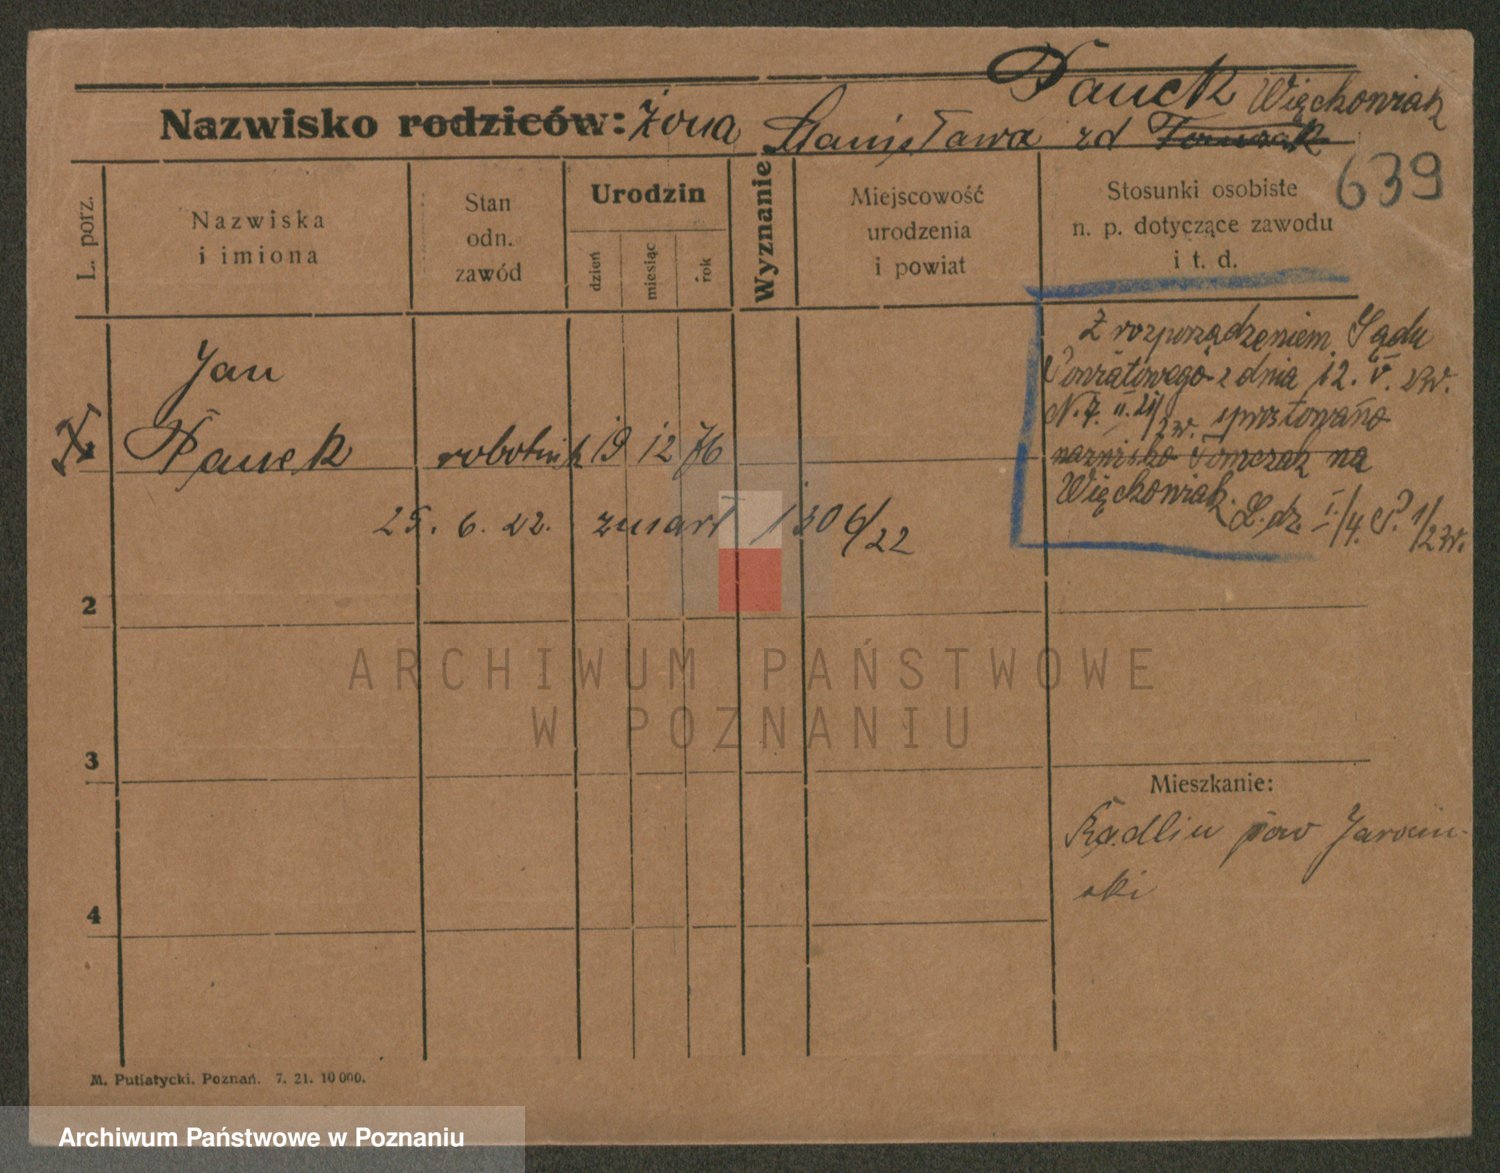 Panek Więckowiak
Nazwisko rodziców: Żona Stanisława zd Tomczak
639
L. porz.
Nazwiska
i imiona
Stan
odn.
zawód
Urodzin
dzień
miesiąc
rok
Wyznanie
Miejscowość
urodzenia
i powiat
Stosunki osobiste
n. p. dotyczące zawodu
i t. d.
Z rozporządzeniem Sądu
Powiatowego z dnia 12. V. 23r.
sprostowano
nazwisko Tomczak na
Więckowiak.
L. dz
Jan
Panek robotnik 19 12 76
25. 6. 22. zmarł 130 6/22
2
3
4
Mieszkanie:
Radlin pow Jarocin-
ski
ARCHIWUM PAŃSTWOWE
W POZNANIU
M. Putiatycki. Poznań. 7. 21. 10 000.
Archiwum Państwowe w Poznaniu